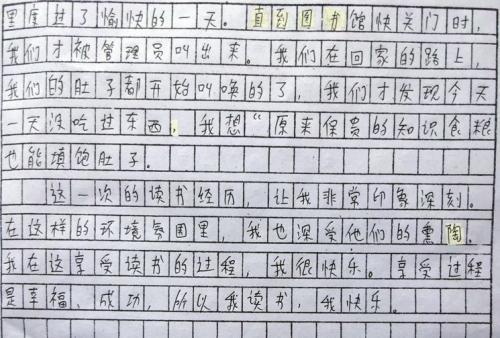 里度过了愉快的一天。直到图书馆快关门时，
我们才被管理员叫出来。我们在回家的路上，
我们的肚子都开始叫唤的了，我们才发现今天
一天没吃过东西，我想“原来保贵的知识食粮
也能填饱肚子。
这一次的读书经历，让我非常印象深刻。
在这样的环境氛围里，我也深受他们的熏陶。
我在这享受读书的过程，我很快乐。享受过程
是幸福、成功，所以我读书，我快乐。